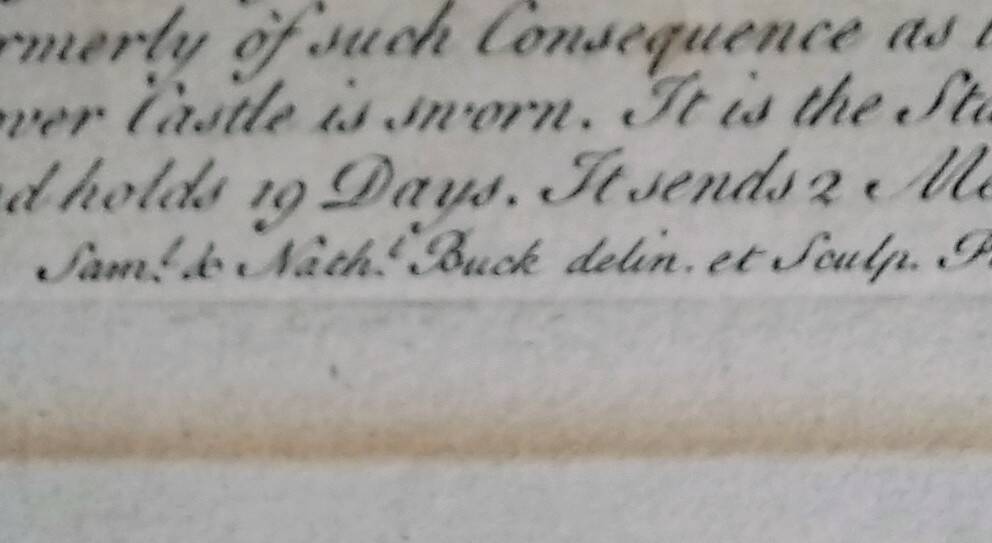 rmerly of such Consequence as
ver Castle is sworn. It is the Sta
d holds 19 Days. It sends 2 Me
Sam.l & Nath.l Buck delin. et Sculp. P